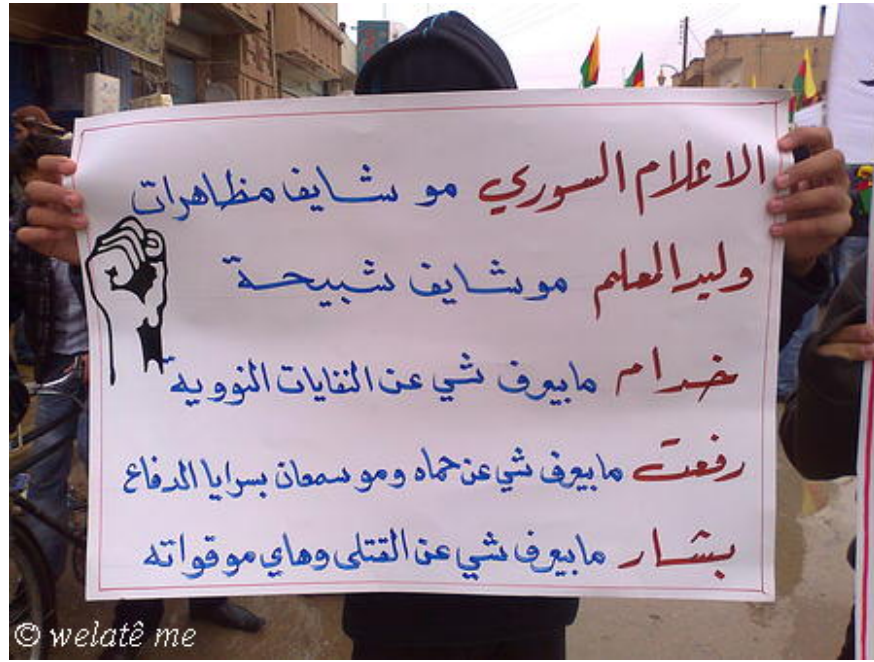 الاعلام السوري مو شايف مظاهرات
وليد المعلم مو شايف شبيحة
خدام ما بيعرف شي عن النفايات النووية
رفعت ما بيعرف شي عن حماه ومو سمعان بسرايا الدفاع
بشار ما بيعرف شي عن القتلى وهاي مو قواته
© welatê me